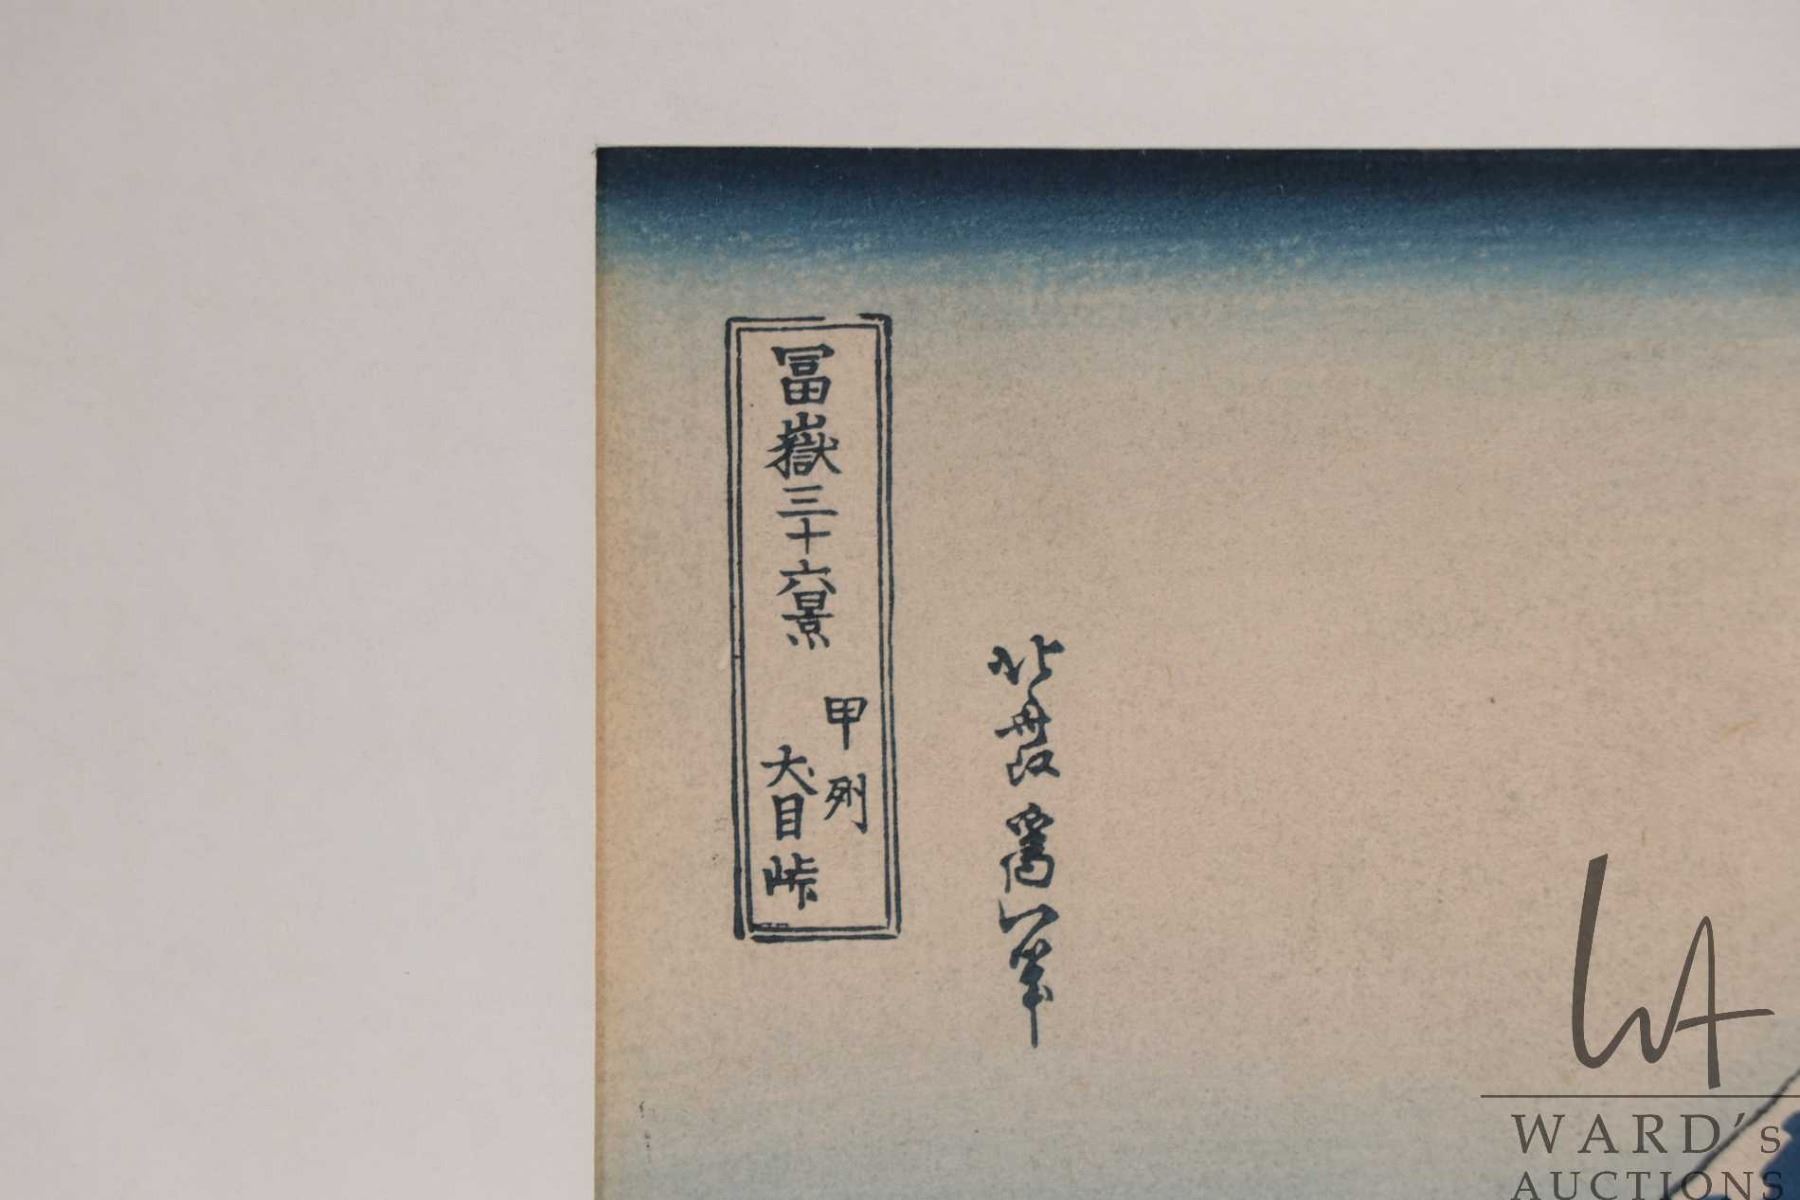 冨嶽三十六景
甲州
犬目峠
北斎改爲一筆
WA
WARD's
AUCTIONS